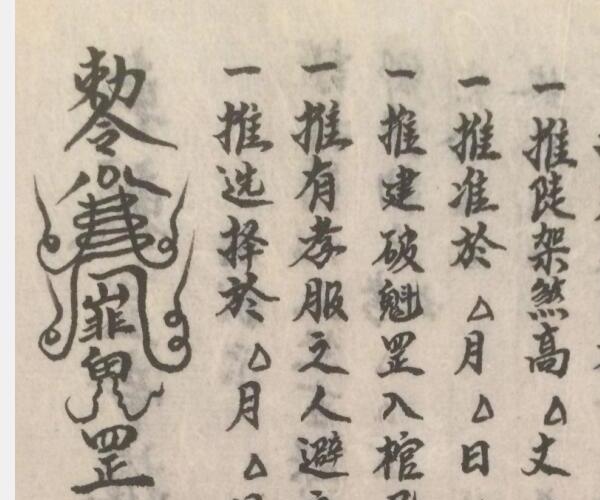 一推陡架煞高△丈
一推准於△月△日
一推建破魁罡入棺
一推有孝服之人避
一推选择於△月
敕令
罡